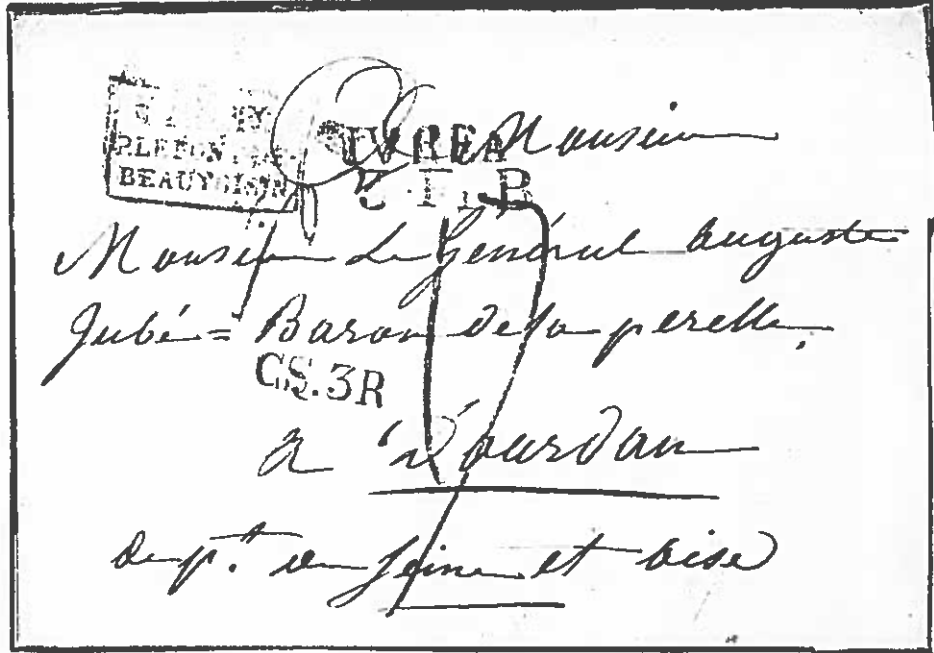 PAR LE PONT DE
BEAUVOISIN
IVREA
C.F.R
A Monsieur
Monsieur Le Général Auguste
Jubé = Baron de la perelle
CS.3R
a Dourdan
Dep.t de Seine et Oise